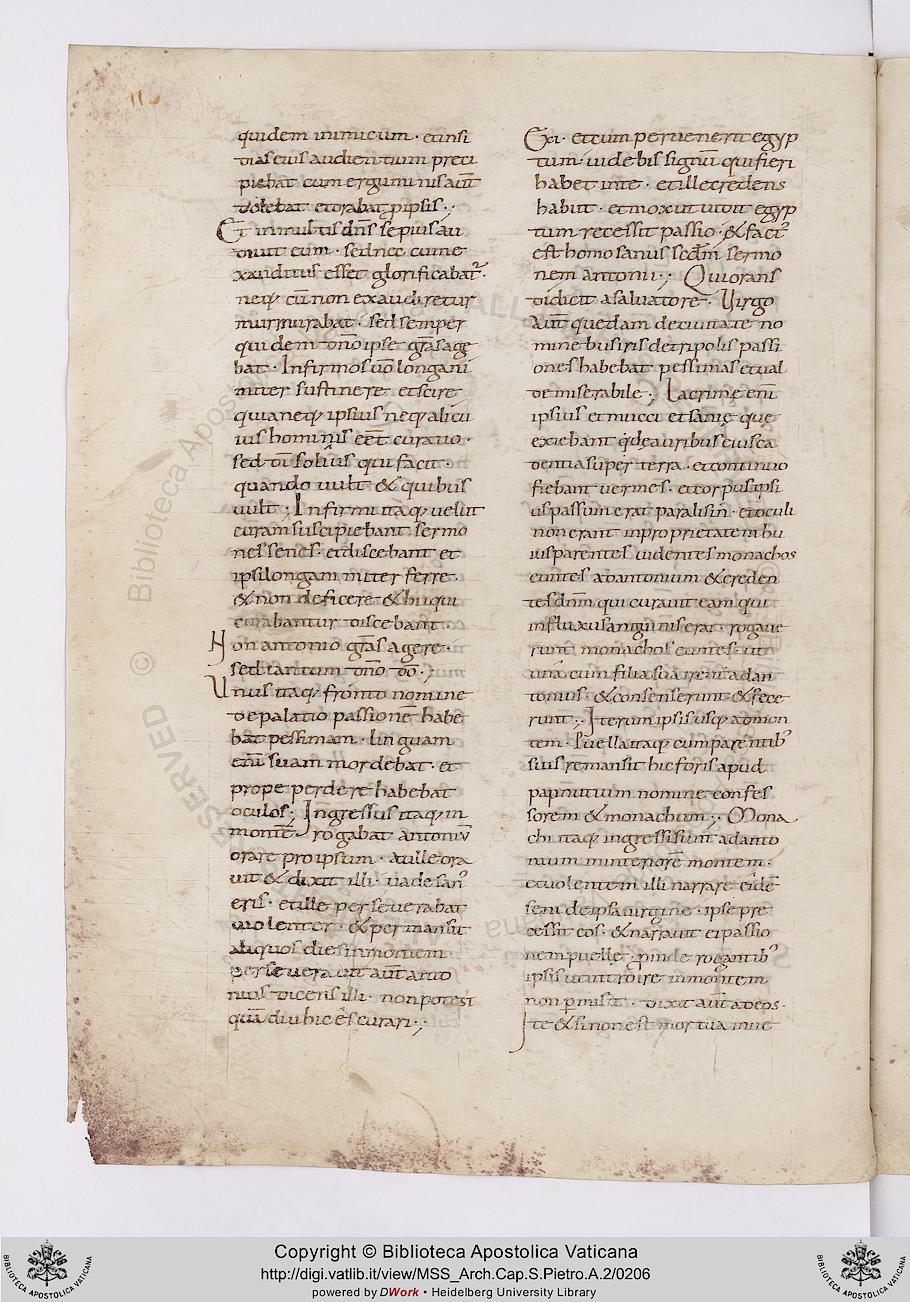 quidem inimicum · etinsi
dias eius audientium preci
piebat cum ergum nisaut̄
dolebat etorabat ꝓipsis ·,·
Et inmultis dn̄s sepius au
diuit eum · sed nec cum e
xauditus esset glorificabat᷑ ·
neq; cū non exaudiretur
murmurabat · sed semper
quidem dn̄o ipse grās age
bat · Infirmos ūo longani
miter sustinere et scire
quia neq; ipsius neq; alicu
ius hominis eēt curatio ·
sed dī solius qui facit ·
quando uult & quibus
uult ; Infirmi itaq; uelut
curam suscipiebant sermo
nes senes · et discebant et
ipsi longanimiter ferre ·
& non deficere & hii qui
curabantur discebant ·
Non antonio grās agere ·
sed tantum dn̄o dō ·,·
Unus itaq; fronto nomine
de palatio passionē habe
bat pessimam · linguam
enī suam mordebat · et
prope perdere habebat
oculos ; Ingressus itaq; in
montē rogabat antoniū
orare pro ipsum · at ille ora
uit & dixit illi · uade san᾽
eris · et ille perseuerabat
uiolenter · & permansit
aliquos dies in montem
perseverauit aut̄ anto
nius dicens illi · non potest
quādiu hic ēs curari ·,·
Exi · et cum perueneris egyp
tum · uidebis signū qui fieri
habet in te · et ille credens
habiit · et mox ut uidit egyp
tum recessit passio · & fact᾽
est homo sanus secd̄m sermo
nem antonii ·,· Qui orans
didicit a saluatore · Uirgo
aut̄ quedam de ciuitate no
mine busiris de tripolis passi
ones habebat pessimas et ual
de miserabile · Lacrime enī
ipsius et mucci et sanię quę
exiebant q̇deauribus eius ca
dentia super terra · et continuo
fiebant uermes · et corpus ipsi
us passum erat paralisin · et oculi
non erant in proprietatem hu
ius parentes uidentes monachos
euntes ab antonium & creden
tes dn̄m qui curauit eam qui
influxu sanguinis erat · rogaue
runt monachos euntes · ut
unā cum filia sua irent ad an
tonius · & consenserunt & fece
runt ·,· Iterum ipsis usq; ad mon
tem · Puella itaq; cum parentib᾽
suis remansit hic foris apud
papnutium nomine confes
sorem & monachum ·,· Mona
chi itaq; ingressi sunt ad anto
nium in interiorē montem ·
et uolentem illi narrare eidē
seni de ipsa uirgine · ipse pre
cessit eos · & narrauit ei passio
nem puellę · ꝓinde rogantib᾽
ipsis ut introire in montem
non ꝑmisit · dixit aut̄ ad eos ·
Ite & si non est mortua inue
Copyright © Biblioteca Apostolica Vaticana
http://digi.vatlib.it/view/MSS_Arch.Cap.S.Pietro.A.2/0206
powered by DWork • Heidelberg University Library